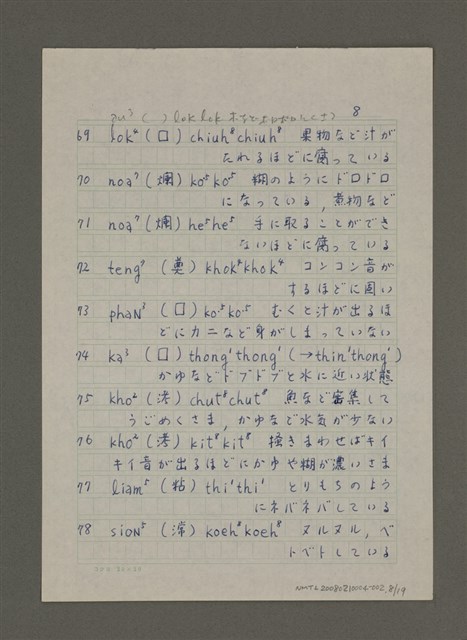 8
69 lok⁴ (□) chiuh⁸chiuh⁸ 果物など汁が
たれるほどに腐っている
70 noa⁷ (爛) ko⁵ko⁵ 糊のようにドロドロ
になっている, 煮物など
71 noa⁷ (爛) he⁵he⁵ 手に取ることができ
ないほどに腐っている
72 teng⁷ (奠) khok⁸khok⁴ コンコン音が
するほどに固い
73 phaN³ (□) ko·⁵ko·⁵ むくと汁が出るほ
どにカニなど身がしまっていない
74 ka³ (□) thong¹thong¹ (→thin¹thong¹)
かゆなどドブドブと水に近い状態
75 kho² (洘) chut⁸chut⁸ 魚など密集して
うごめくさま, かゆなど水気が少ない
76 kho² (洘) kit⁸kit⁸ 掻きまわせばキイ
キイ音が出るほどにかゆや糊が濃いさま
77 liam⁵ (粘) thi¹thi¹ とりもちのよう
にネバネバしている
78 sioN⁵ (瀋) koeh⁸koeh⁸ ヌルヌル, ベ
トベトしている
NMTL20080210004-002, 8/19